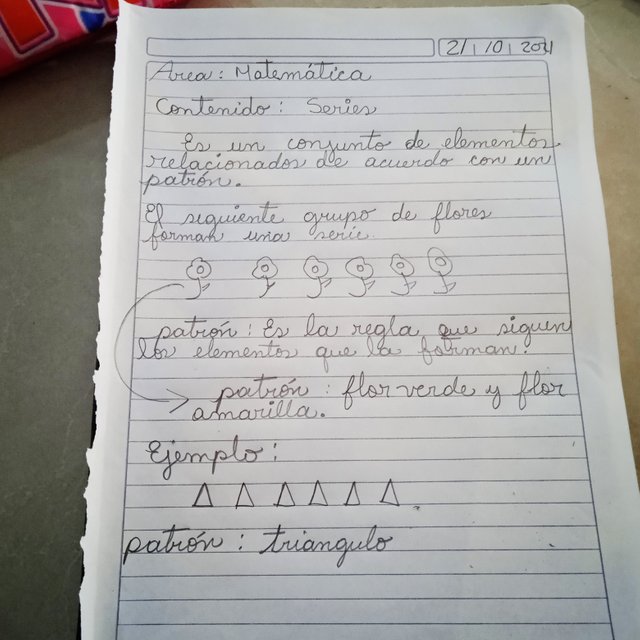 2/10/2021
Area: Matemática
Contenido: Series
Es un conjunto de elementos
relacionados de acuerdo con un
patrón.
El siguiente grupo de flores
forman una serie.
patrón: Es la regla que siguen
los elementos que la forman.
patrón: flor verde y flor
amarilla.
Ejemplo:
patrón: triangulo